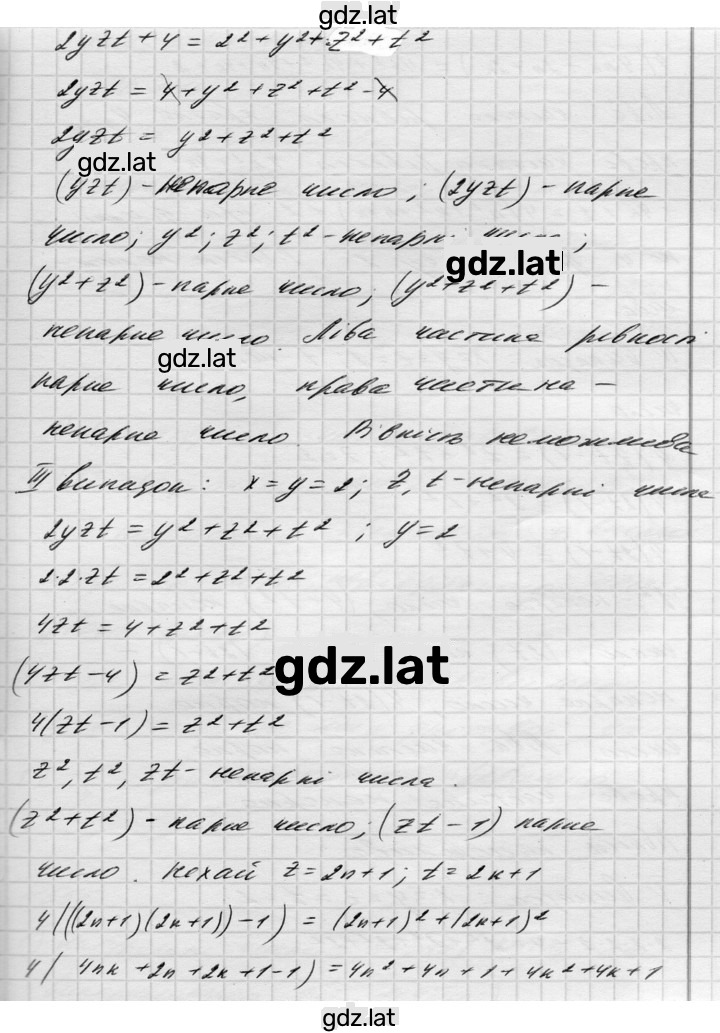 gdz.lat
2yzt + 4 = 2² + y² + z² + t²
2yzt = 4 + y² + z² + t² - 4
2yzt = y² + z² + t²
gdz.lat
(yzt) - непарне число; (2yzt) - парне
число; y²; z²; t² - непарні ;
gdz.lat
(y² + z²) - парне число; (y² + z² + t²) -
непарне число. Ліва частина рівності
gdz.lat
парне число, права частина -
непарне число. Рівність неможлива
III випадок: x = y = 2; z, t - непарні числа
2yzt = y² + z² + t²; y = 2
2·2·zt = 2² + z² + t²
4zt = 4 + z² + t²
gdz.lat
(4zt - 4) = z² + t²
4(zt - 1) = z² + t²
z², t², zt - непарні числа.
(z² + t²) - парне число; (zt - 1) парне
число. Нехай z = 2n+1; t = 2k+1
4/((2n+1)(2k+1)) - 1) = (2n+1)² + (2k+1)²
4/ 4nk + 2n + 2k + 1 - 1) = 4n² + 4n + 1 + 4k² + 4k + 1
gdz.lat